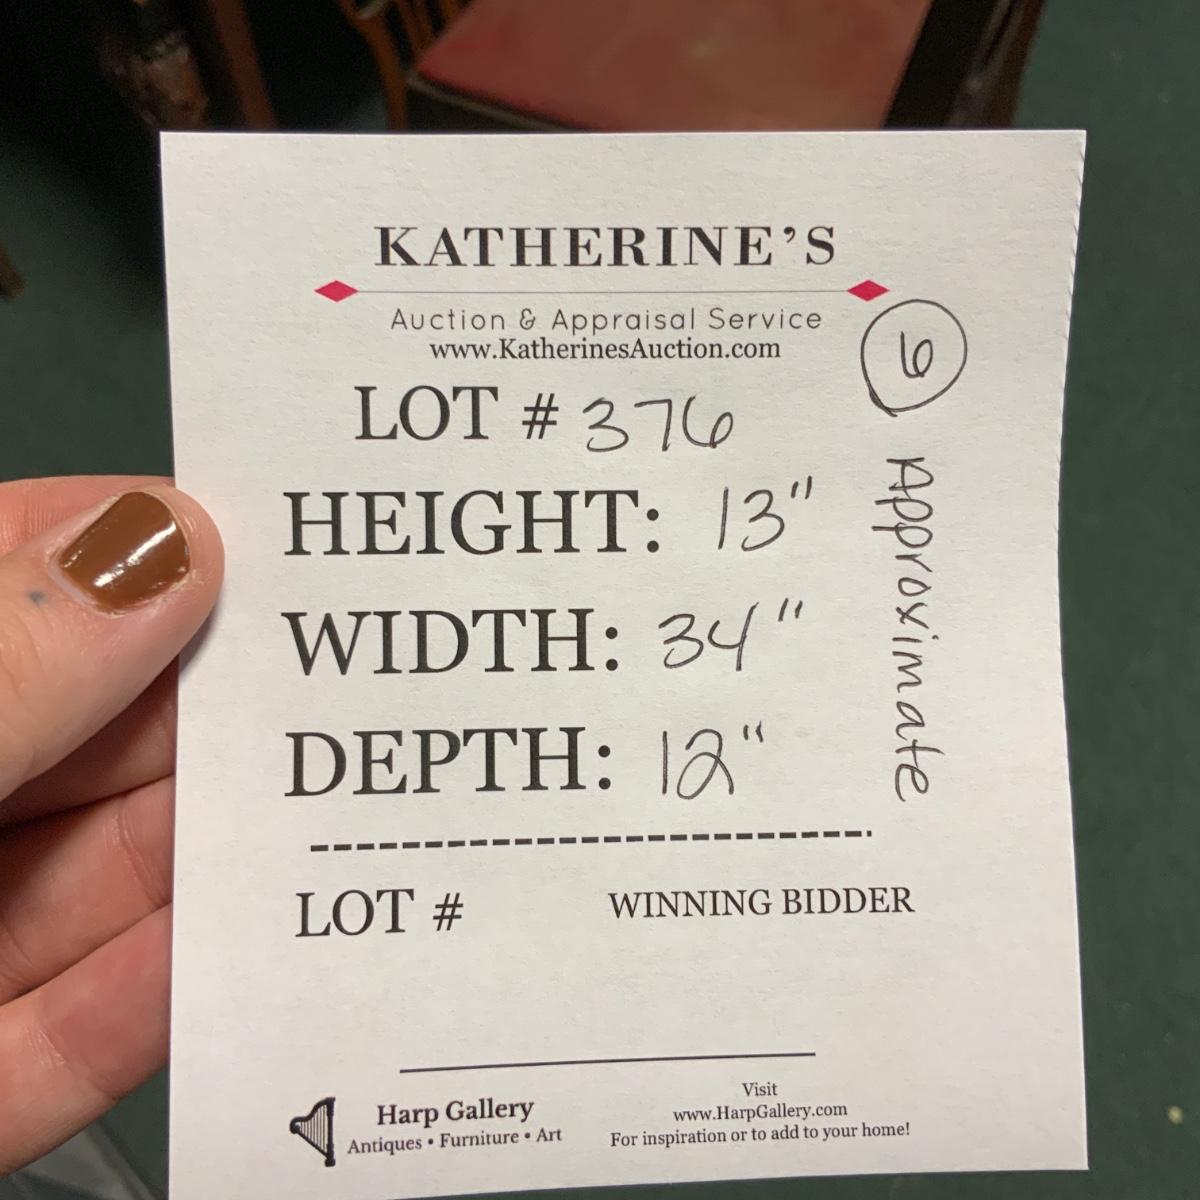 KATHERINE'S
Auction & Appraisal Service
www.KatherinesAuction.com
6
LOT # 376
HEIGHT: 13"
WIDTH: 34"
DEPTH: 12"
Approximate
LOT #
WINNING BIDDER
Harp Gallery
Antiques • Furniture • Art
Visit
www.HarpGallery.com
For inspiration or to add to your home!